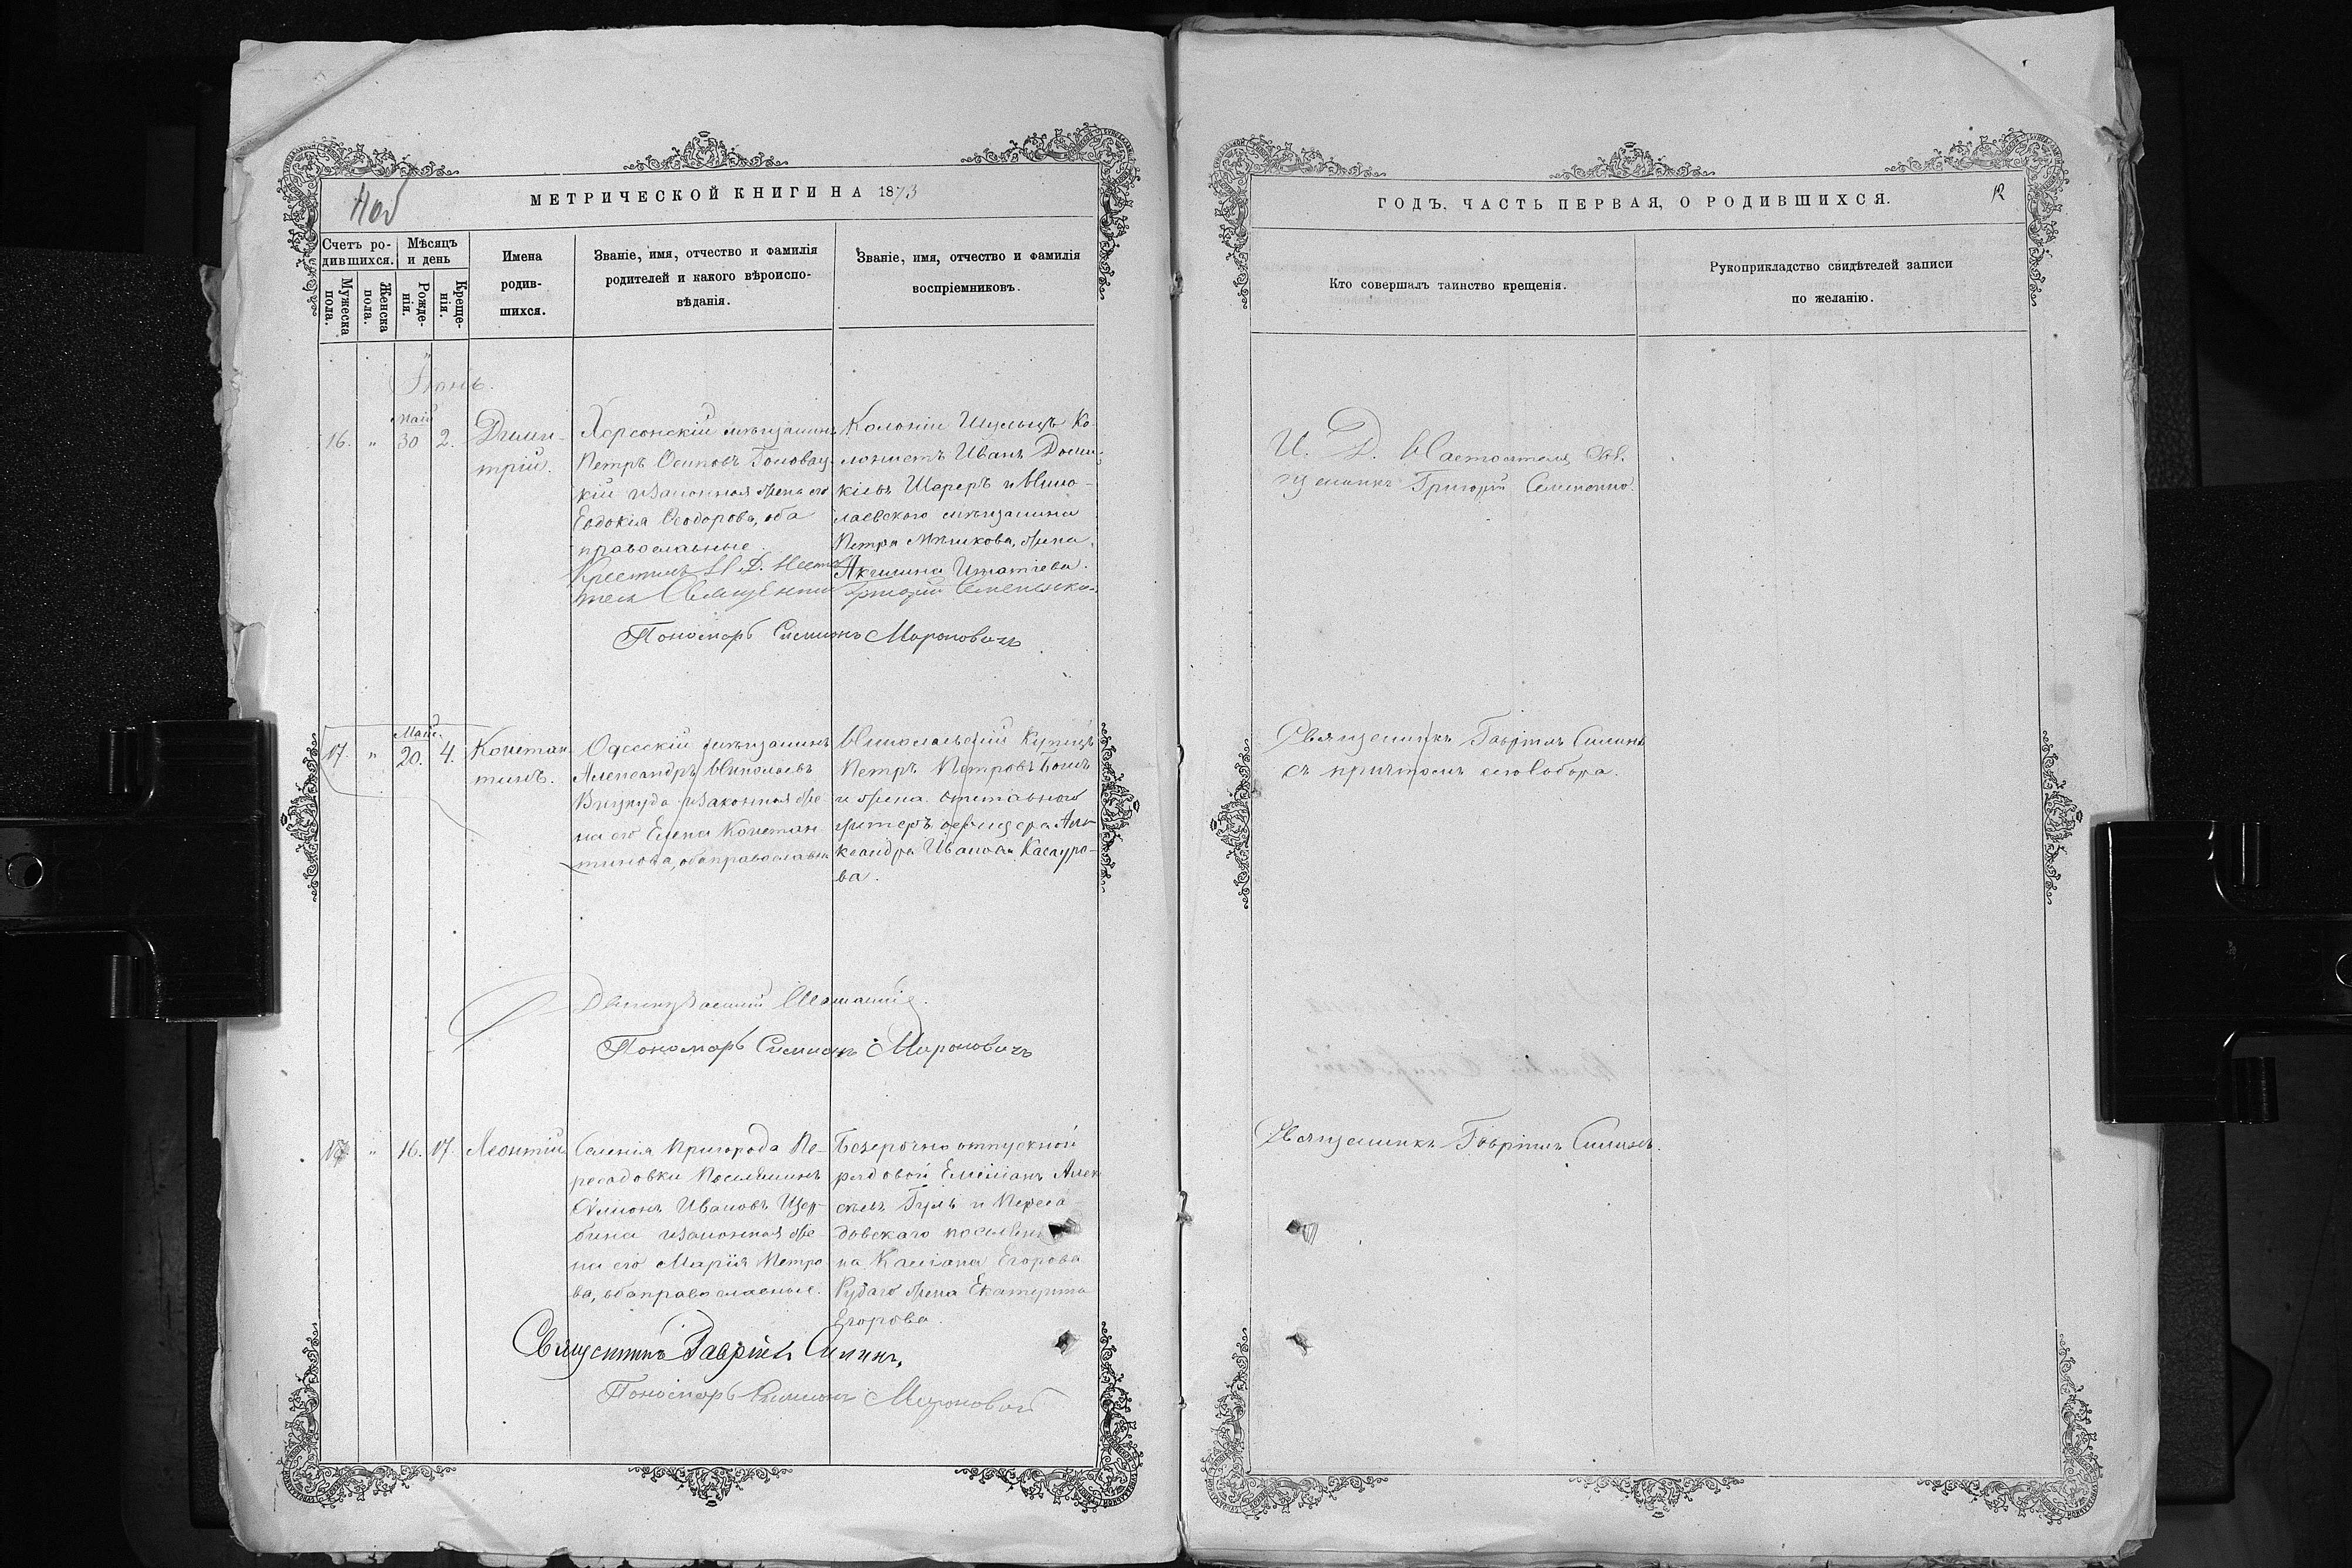 МЕТРИЧЕСКОЙ КНИГИ НА 1873
Счетъ ро-
дившихся.
Мѣсяцъ
и день
Мужеска
пола.
Женска
пола.
Рожде-
нія.
Креще-
нія.
Имена
родив-
шихся.
Званіе, имя, отчество и фамилія
родителей и какого вѣроиспо-
вѣданія.
Званіе, имя, отчество и фамилія
воспріемниковъ.
Іюнь.
16. " Май 30 2.
Дими-
трій.
Херсонскій мѣщанинъ
Петръ Осиповъ Головац-
кій и законная жена его
Евдокія Ѳеодорова, оба
православные
Колоніи Шульцъ Ко-
лонистъ Иванъ
Шареръ и Нико-
лаевского мѣщанина
Петра жена
Акилина Игнатіева.
Крестилъ И. Д. Настоя-
тель Священникъ Григорій Семененко
Пономарь Симеонъ Мироновичъ
17. " Май. 20. 4.
Констан-
тинъ.
Одесскій мѣщанинъ
Александръ Николаевъ
и законная же-
на его Елена Констан-
тинова, оба православн.
Николаевскій Купецъ
Петръ Петровъ
и жена отставного
унтеръ офицера Але-
ксандра Иванова
ва.
Пономарь Симеонъ Мироновичъ
" 16. 17.
Леонтій
Селенія Пригорода Пе-
ресадовки Поселянинъ
Симеонъ Ивановъ Щер-
бина и законная же-
на его Марія Петро-
ва, оба православные.
Безсрочно отпускной
рядовой Емеліанъ Алек-
сѣевъ и Переса-
довскаго поселяни-
на Касіана Егорова
жена Екатерина
Егорова.
Священникъ Гавріилъ Силинъ,
Пономарь Симеонъ Мироновичъ
ГОДЪ, ЧАСТЬ ПЕРВАЯ, О РОДИВШИХСЯ.
12
Кто совершалъ таинство крещенія.
Рукоприкладство свидѣтелей записи
по желанію.
И. Д. Настоятеля Свя-
щенникъ Григорій Семененко.
Священникъ Гавріилъ Силинъ
съ причтомъ сего Собора.
Священникъ Гавріилъ Силинъ.